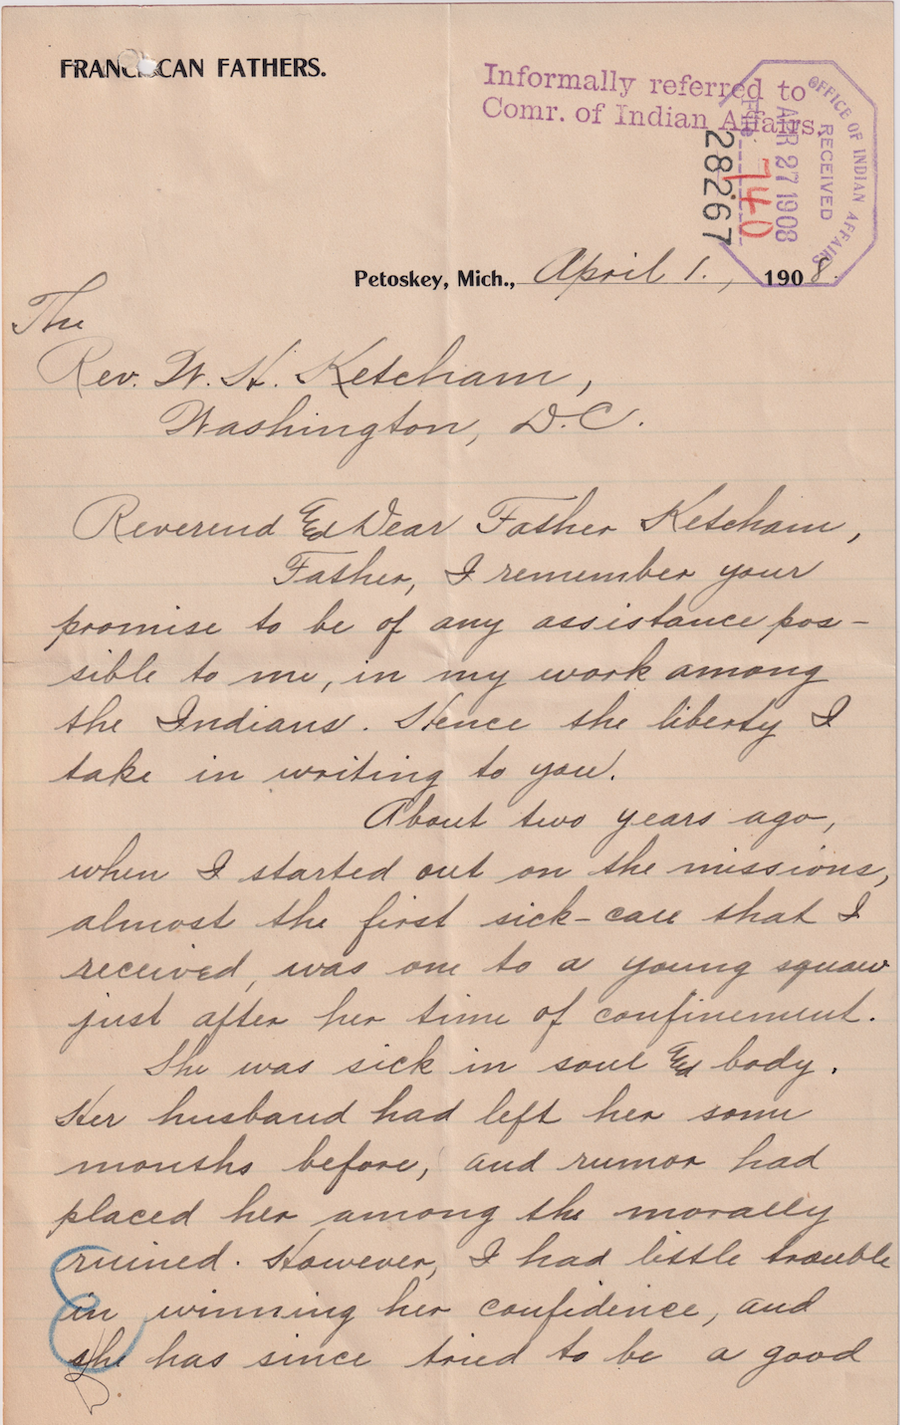 FRANCISCAN FATHERS.
Informally referred to
Comr. of Indian Affairs.
OFFICE OF INDIAN AFFAIRS
RECEIVED
APR 27 1908
File
740
28267
Petoskey, Mich., April 1., 1908.
The
Rev. W. H. Ketcham,
Washington, D.C.
Reverend & Dear Father Ketcham,
Father, I remember your
promise to be of any assistance pos-
sible to me, in my work among
the Indians. Hence the liberty I
take in writing to you.
About two years ago,
when I started out on the missions,
almost the first sick-call that I
received, was one to a young squaw
just after her time of confinement.
She was sick in soul & body.
Her husband had left her some
months before, and rumor had
placed her among the morally
ruined. However, I had little trouble
in winning her confidence, and
she has since tried to be a good